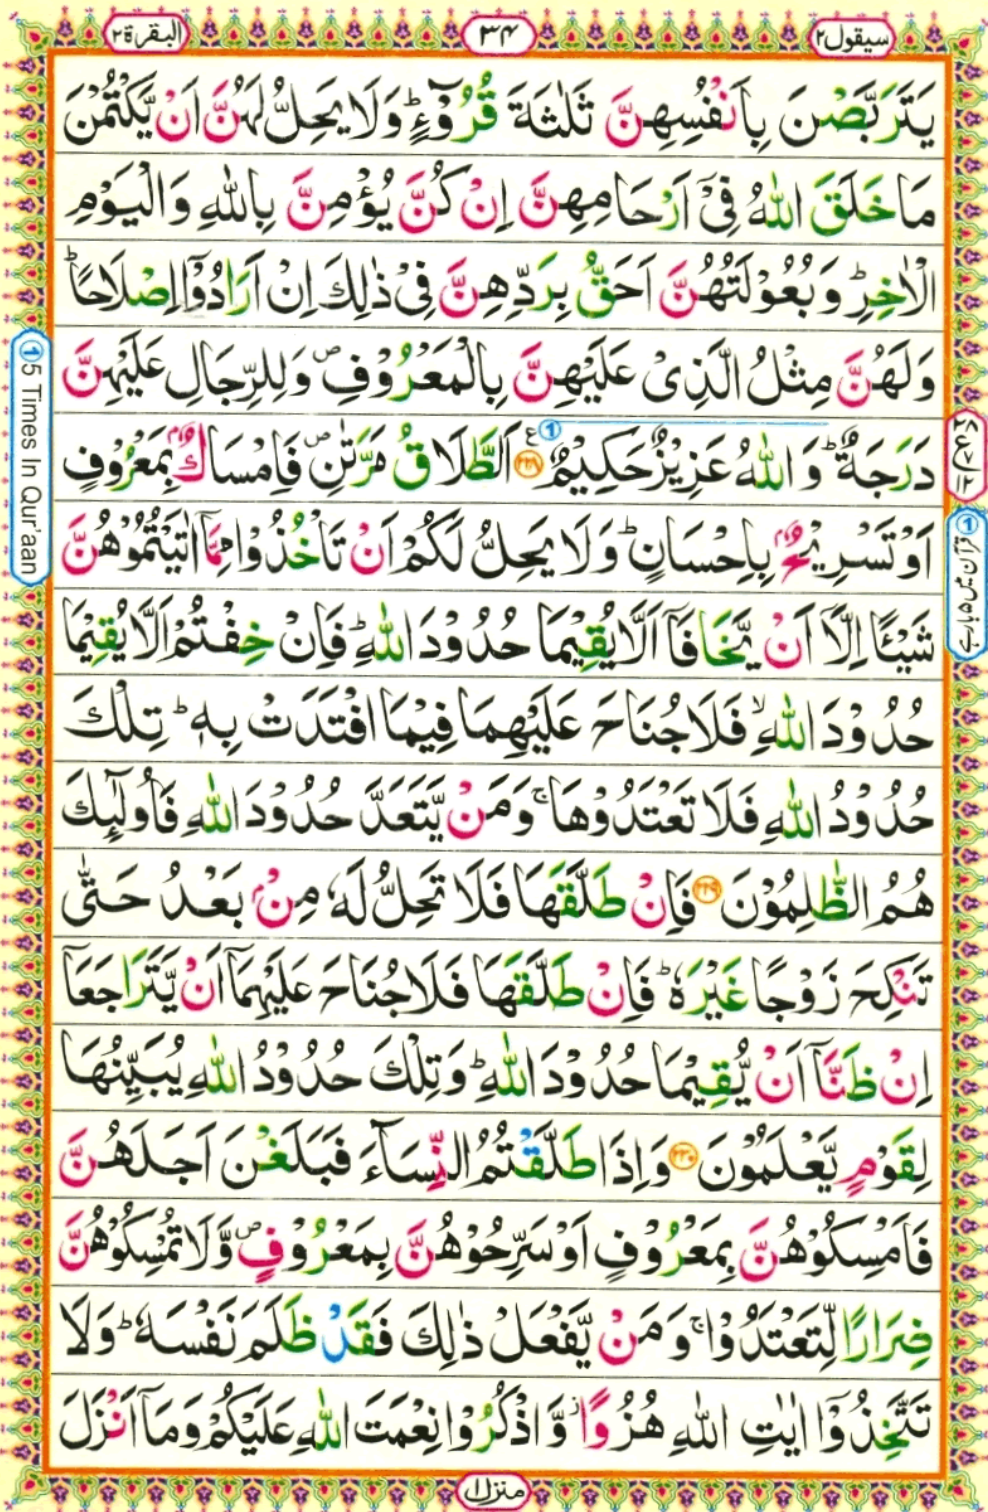 البقرة٢
٣٤
سيقول٢
يَتَرَبَّصْنَ بِاَنْفُسِهِنَّ ثَلٰثَةَ قُرُوْٓءٍؕ وَلَا يَحِلُّ لَهُنَّ اَنْ يَّكْتُمْنَ
مَا خَلَقَ اللّٰهُ فِىْٓ اَرْحَامِهِنَّ اِنْ كُنَّ يُؤْمِنَّ بِاللّٰهِ وَالْيَوْمِ
الْاٰخِرِؕ وَبُعُوْلَتُهُنَّ اَحَقُّ بِرَدِّهِنَّ فِىْ ذٰلِكَ اِنْ اَرَادُوْٓا اِصْلَاحًاؕ
وَلَهُنَّ مِثْلُ الَّذِىْ عَلَيْهِنَّ بِالْمَعْرُوْفِص وَلِلرِّجَالِ عَلَيْهِنَّ
دَرَجَةٌؕ وَاللّٰهُ عَزِيْزٌ حَكِيْمٌ ع ① ٢٢٨ اَلطَّلَاقُ مَرَّتٰنِص فَاِمْسَاكٌۢ بِمَعْرُوْفٍ
اَوْ تَسْرِيْحٌۢ بِاِحْسَانٍؕ وَلَا يَحِلُّ لَكُمْ اَنْ تَاْخُذُوْا مِمَّآ اٰتَيْتُمُوْهُنَّ
شَيْـًٔا اِلَّآ اَنْ يَّخَافَآ اَلَّا يُقِيْمَا حُدُوْدَ اللّٰهِؕ فَاِنْ خِفْتُمْ اَلَّا يُقِيْمَا
حُدُوْدَ اللّٰهِۙ فَلَا جُنَاحَ عَلَيْهِمَا فِيْمَا افْتَدَتْ بِهٖؕ تِلْكَ
حُدُوْدُ اللّٰهِ فَلَا تَعْتَدُوْهَاۚ وَمَنْ يَّتَعَدَّ حُدُوْدَ اللّٰهِ فَاُولٰٓئِكَ
هُمُ الظّٰلِمُوْنَ ٢٢٩ فَاِنْ طَلَّقَهَا فَلَا تَحِلُّ لَهٗ مِنْۢ بَعْدُ حَتّٰى
تَنْكِحَ زَوْجًا غَيْرَهٗؕ فَاِنْ طَلَّقَهَا فَلَا جُنَاحَ عَلَيْهِمَآ اَنْ يَّتَرَاجَعَآ
اِنْ ظَنَّآ اَنْ يُّقِيْمَا حُدُوْدَ اللّٰهِؕ وَتِلْكَ حُدُوْدُ اللّٰهِ يُبَيِّنُهَا
لِقَوْمٍ يَّعْلَمُوْنَ ٢٣٠ وَاِذَا طَلَّقْتُمُ النِّسَآءَ فَبَلَغْنَ اَجَلَهُنَّ
فَاَمْسِكُوْهُنَّ بِمَعْرُوْفٍ اَوْ سَرِّحُوْهُنَّ بِمَعْرُوْفٍص وَّلَا تُمْسِكُوْهُنَّ
ضِرَارًا لِّتَعْتَدُوْاۚ وَمَنْ يَّفْعَلْ ذٰلِكَ فَقَدْ ظَلَمَ نَفْسَهٗؕ وَلَا
تَتَّخِذُوْٓا اٰيٰتِ اللّٰهِ هُزُوًاز وَّاذْكُرُوْا نِعْمَتَ اللّٰهِ عَلَيْكُمْ وَمَآ اَنْزَلَ
منزل١
① 5 Times In Qur'aan
٢٨
ع
٧
١٢
① قرآن میں ۵ بار ہے